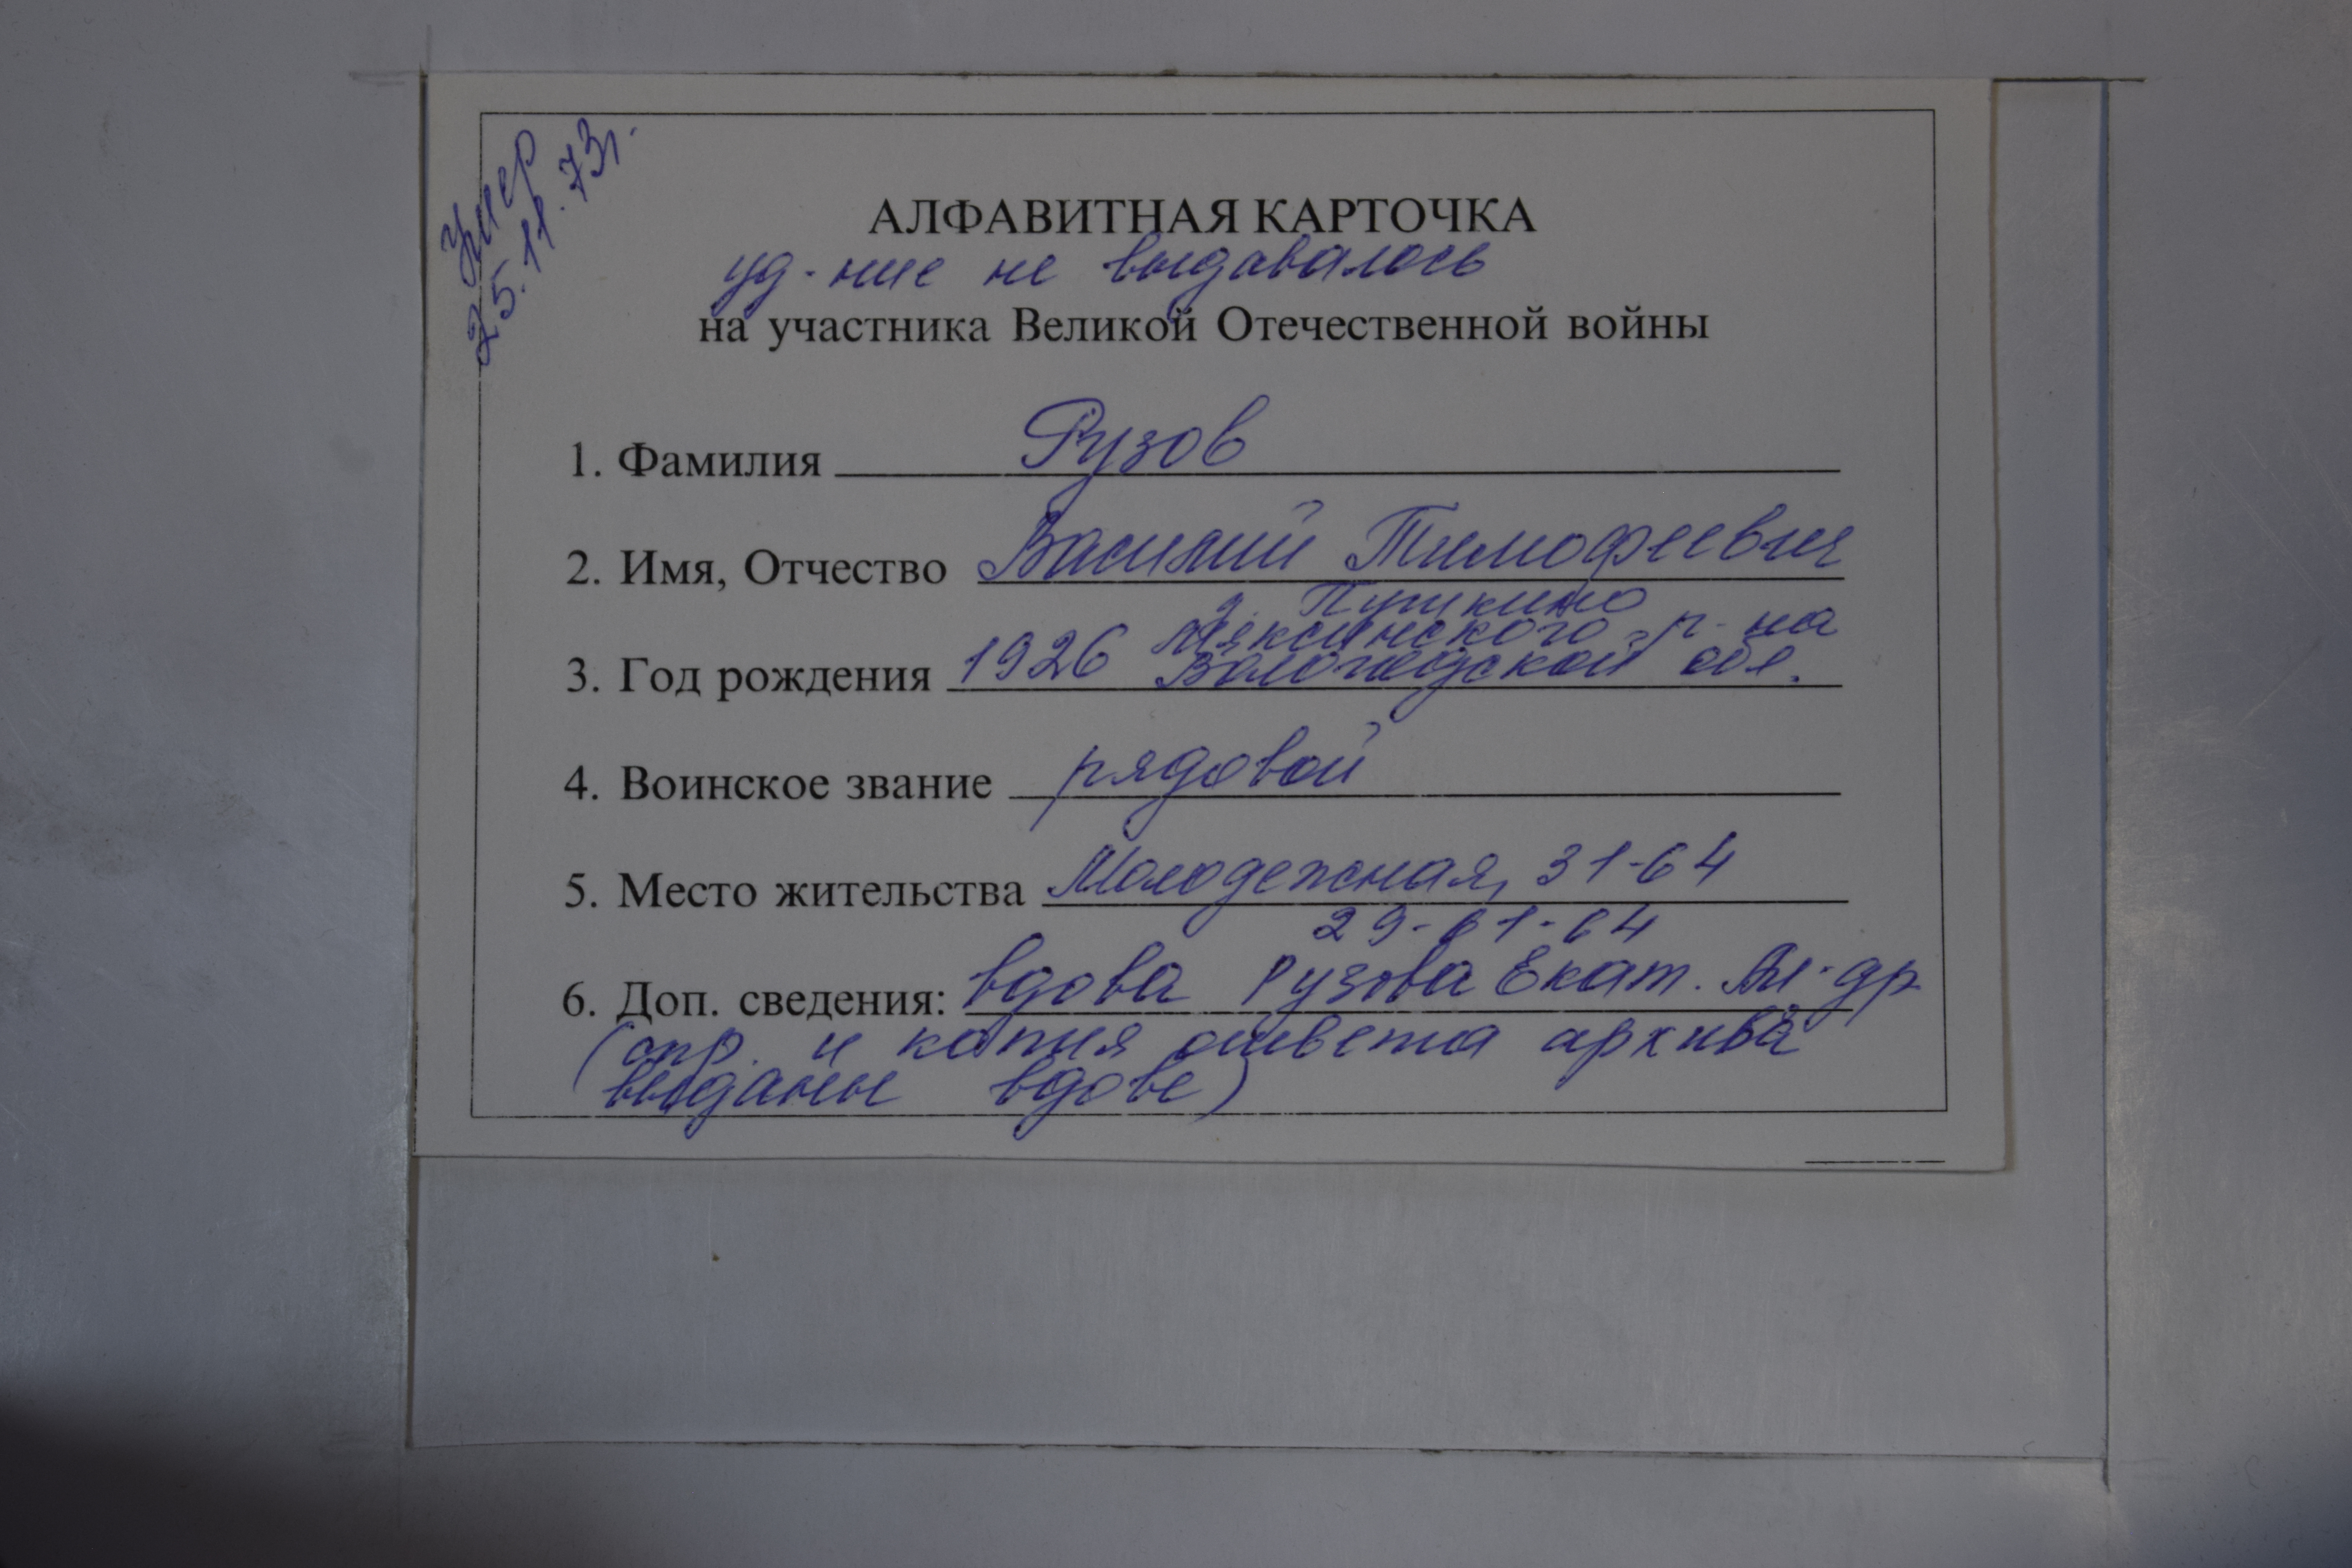 Умер
25.11.73г.
АЛФАВИТНАЯ КАРТОЧКА
уд-ние не выдавалось
на участника Великой Отечественной войны
1. Фамилия Рузов
2. Имя, Отчество Василий Тимофеевич
д. Пушкино
Мяксинского р-на
3. Год рождения 1926 Вологодской обл.
4. Воинское звание рядовой
5. Место жительства Молодежная, 31-64
29-61-64
6. Доп. сведения: вдова Рузова Екат. Ал-др
(спр. и копия ответа архива
выданы вдове)